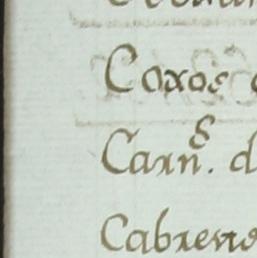 Coxos
Carn.ˢ d
Cabreno